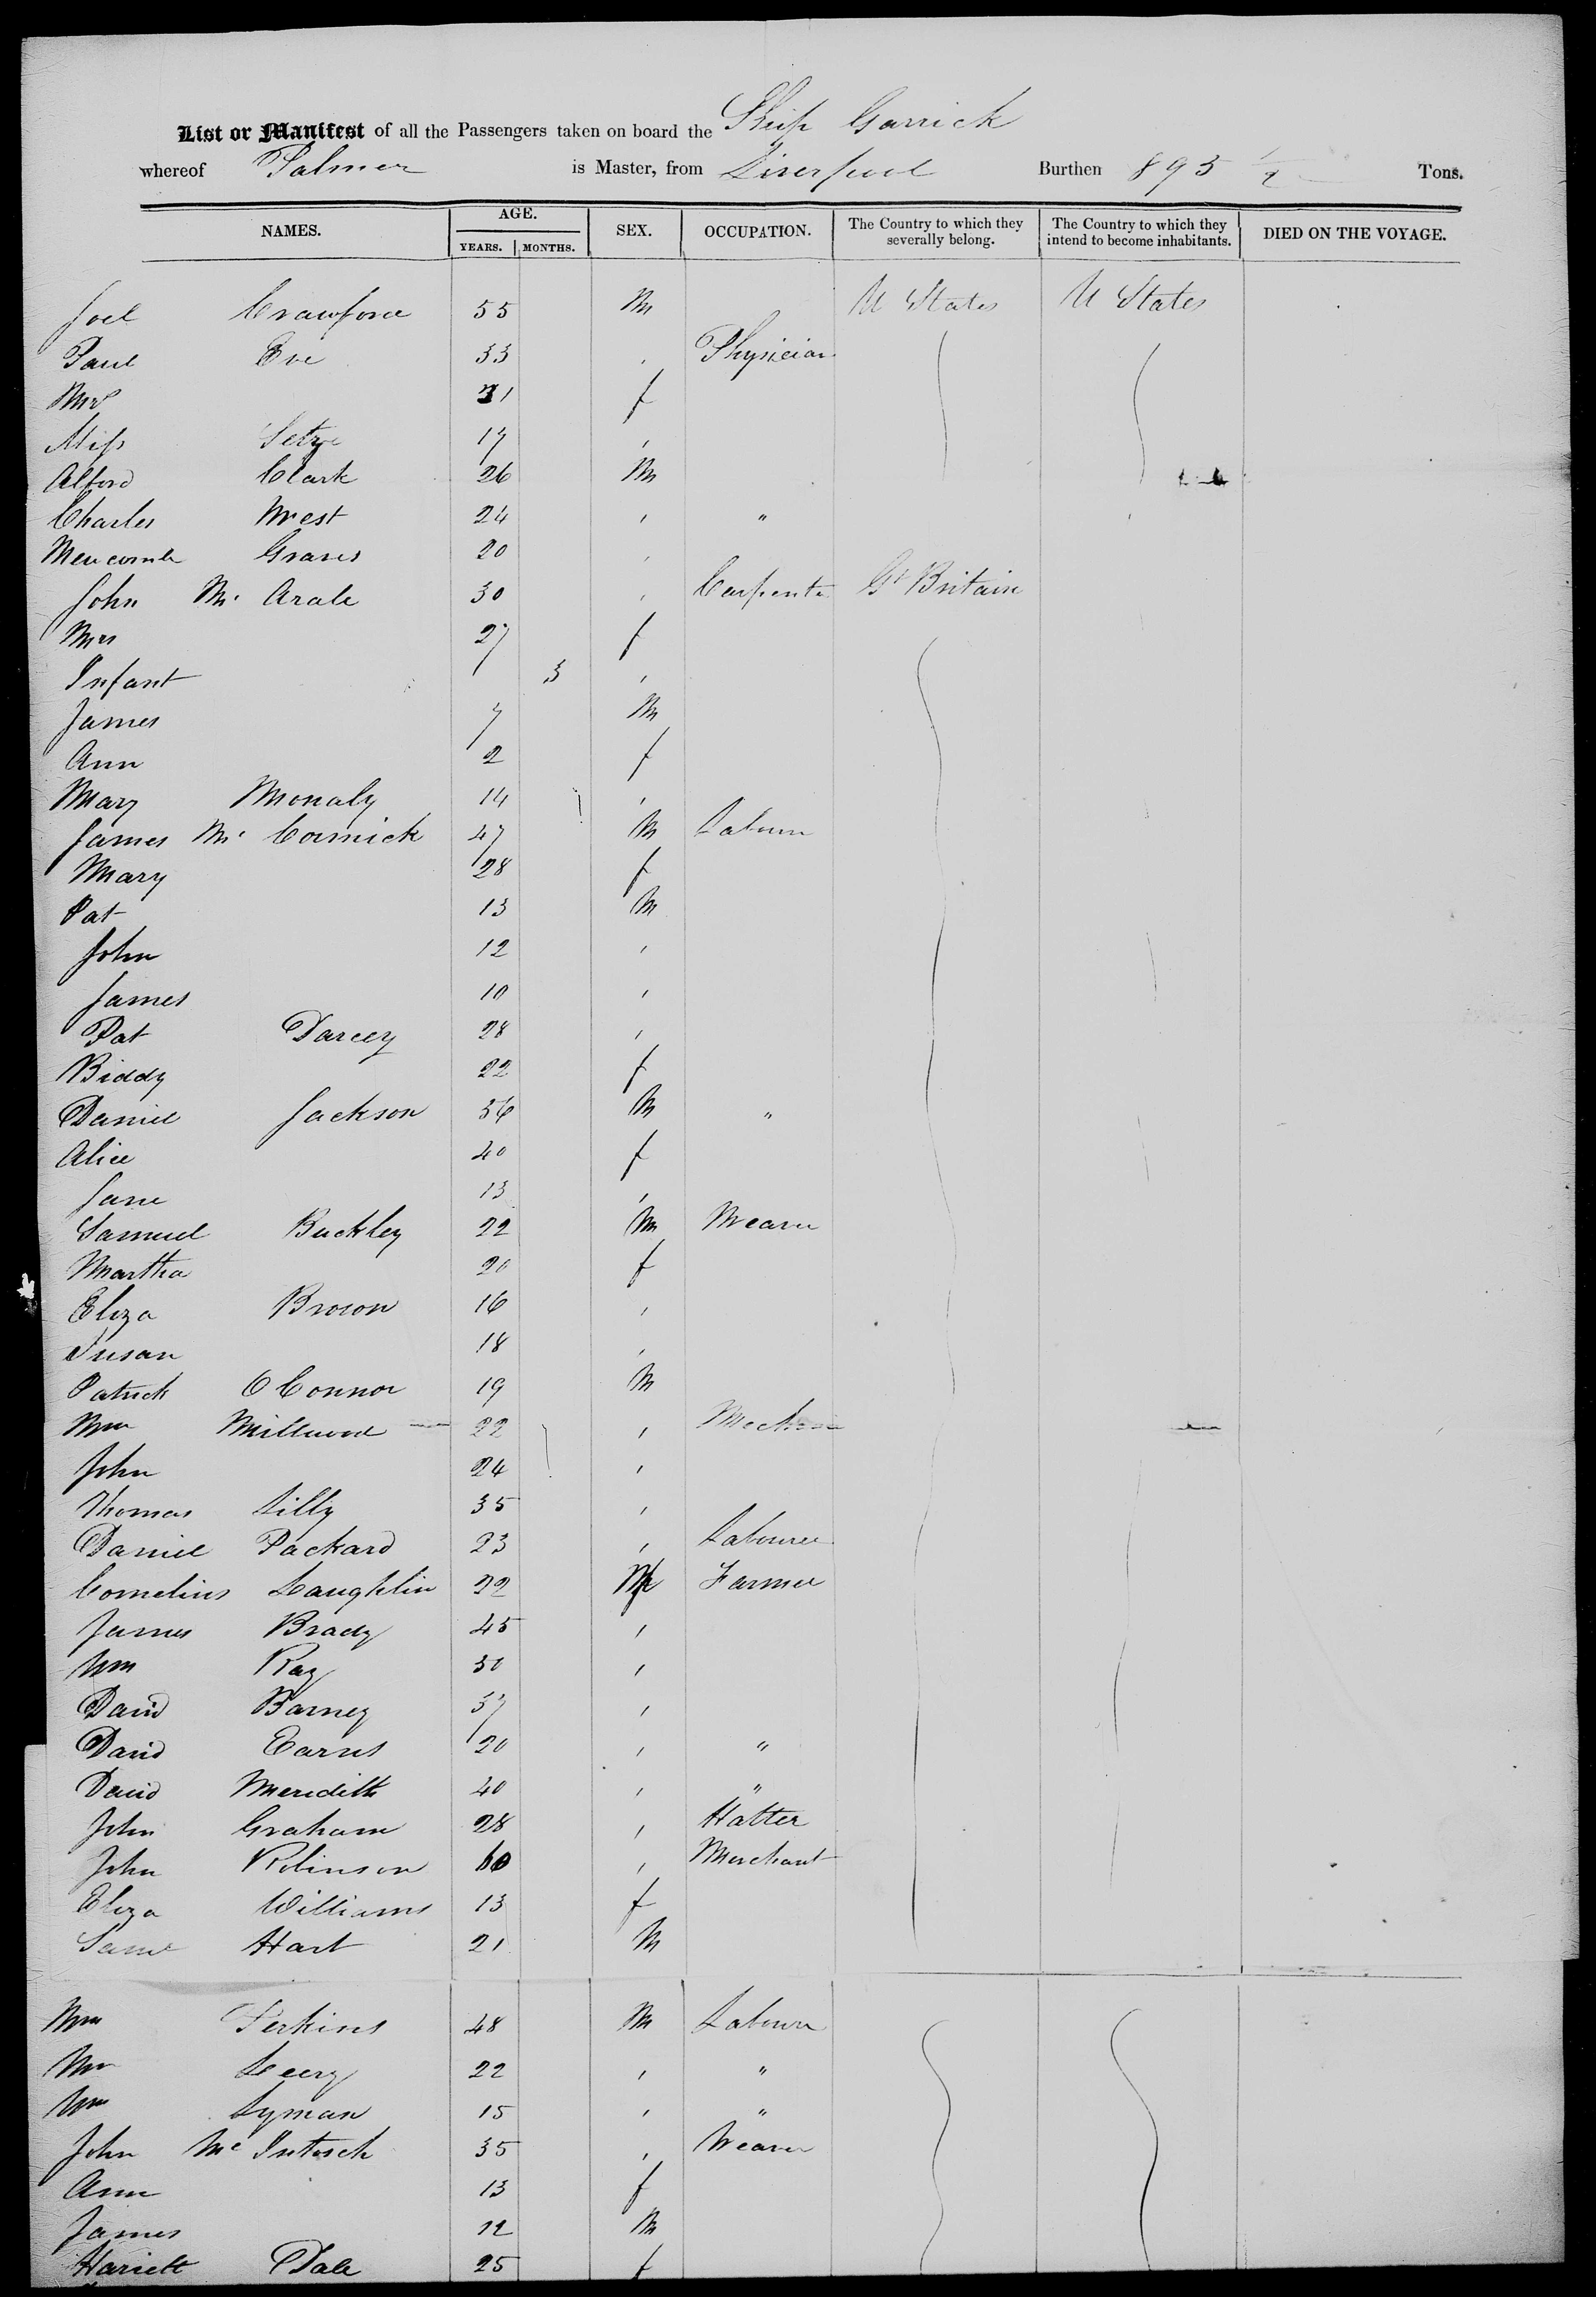 List or Manifest of all the Passengers taken on board the Ship Garrick
whereof Palmer is Master, from Liverpool Burthen 895 1/2 Tons.
NAMES. AGE. SEX. OCCUPATION. The Country to which they severally belong. The Country to which they intend to become inhabitants. DIED ON THE VOYAGE.
YEARS. MONTHS.
Joel Crawford 55 M U States U States
Paul Eve 33 , Physician
Mrs 31 f
Miss Setze 17 ,
Alford Clark 26 M
Charles West 24 , "
Newcomb Graves 20 ,
John Mc Arale 30 , Carpenter Gt Britain
Mrs 27 f
Infant 3 ,
James 7 M
Ann 2 f
Mary Monaly 14 ,
James Mc Cormick 47 M Labourer
Mary 28 f
Pat 13 M
John 12 ,
James 10 ,
Pat Darcey 28 ,
Biddy 22 f
Daniel Jackson 36 M "
Alice 40 f
Jane 13 ,
Samuel Buckley 22 M Weaver
Martha 20 f
Eliza Brown 16 ,
Susan 18 ,
Patrick O Connor 19 M
Wm Millwood 22 ,
John 24 ,
Thomas Lilly 35 ,
Daniel Packard 23 , Labourer
Cornelius Laughlin 22 M Farmer
James Brady 45 ,
Wm Ray 30 ,
David Barney 37 ,
David Earns 20 , "
David Meridith 40 , "
John Graham 28 , Hatter
John Robinson 60 , Merchant
Eliza Williams 13 f
Saml Hart 21 M
Wm Perkins 48 M Labourer
Wm Leery 22 , "
Wm Lyman 15 , "
John Mc Intosch 35 , Weaver
Ann 13 f
James 12 M
Hariett Dale 25 f